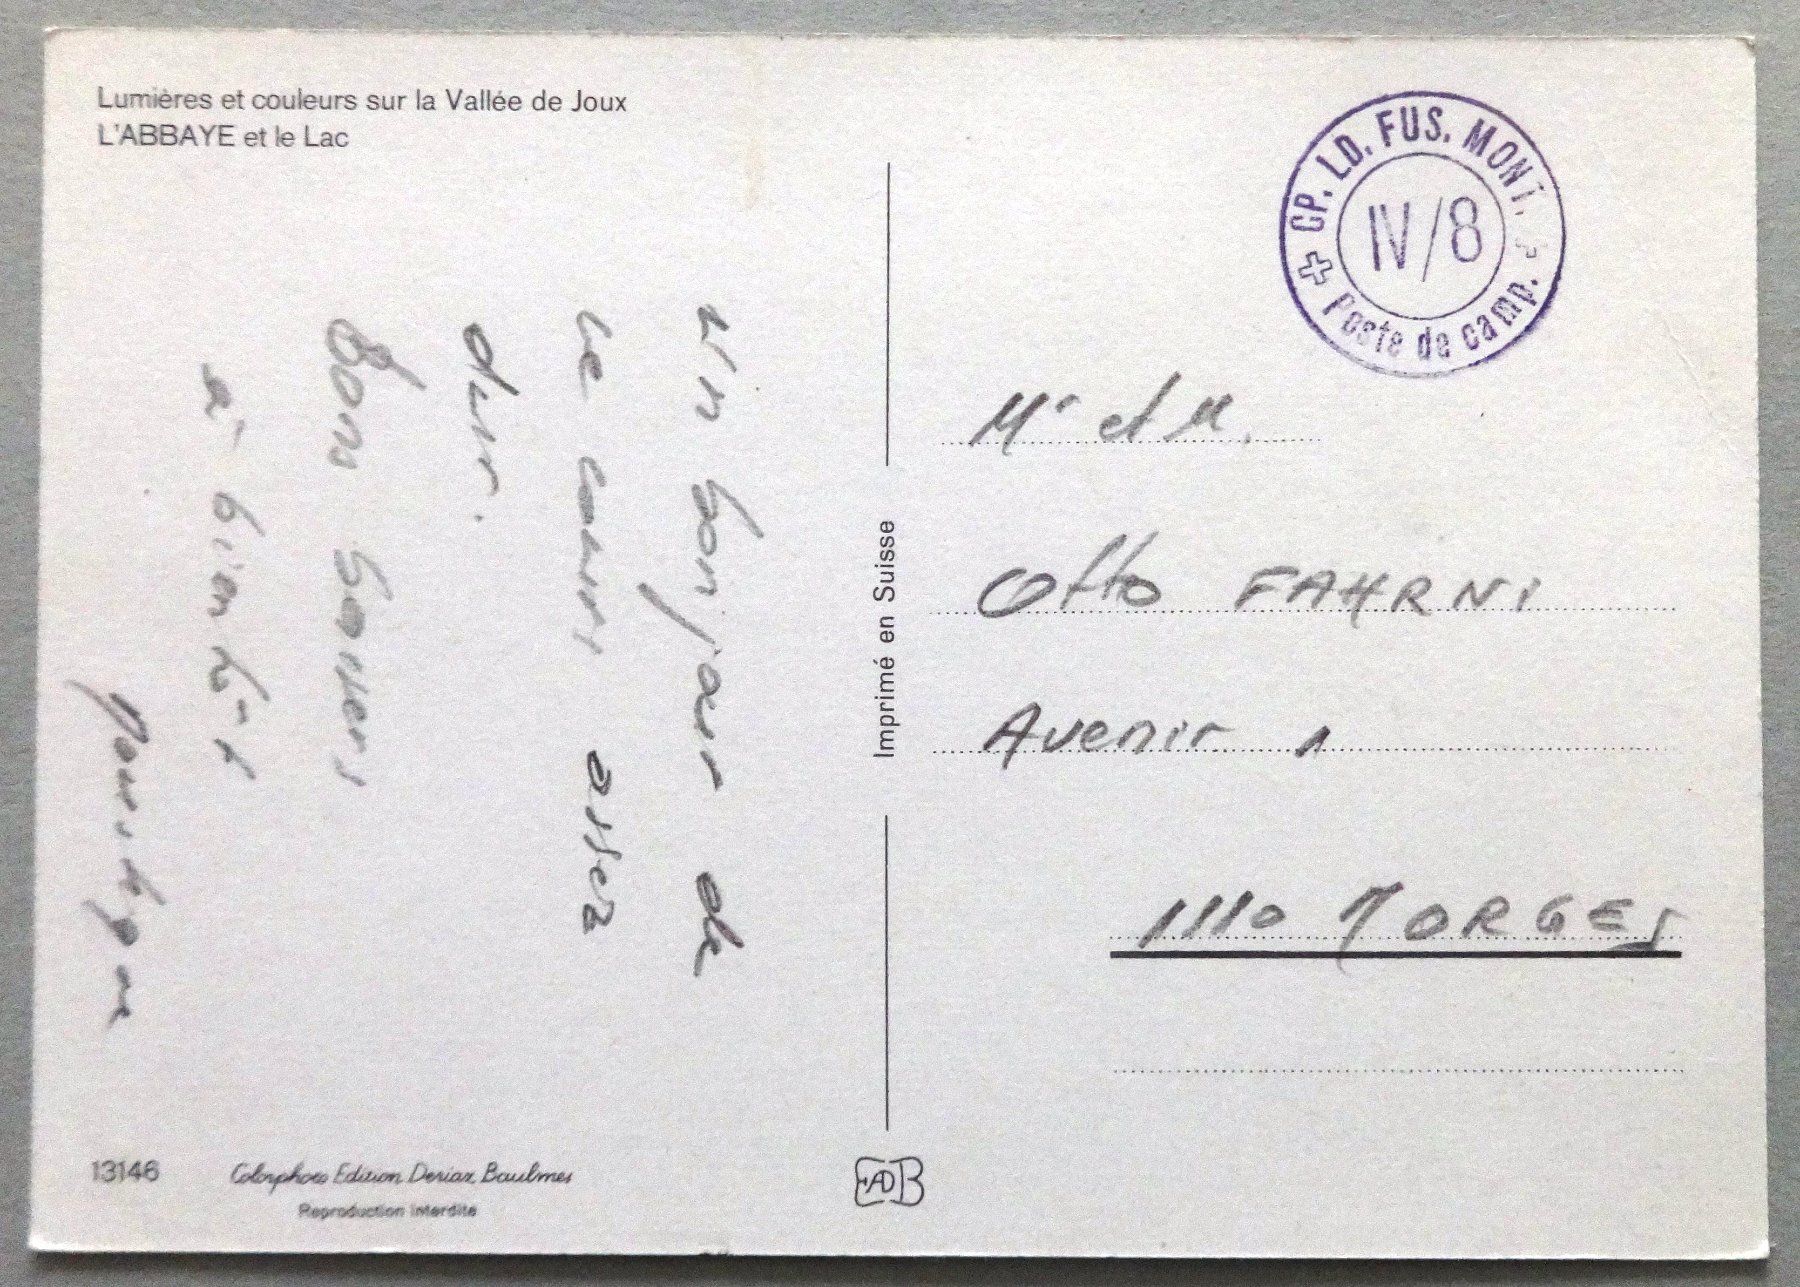 Lumières et couleurs sur la Vallée de Joux
L'ABBAYE et le Lac
CP. LD. FUS. MONT.
IV/8
Poste de camp.
un bonjour de
ce cours assez
dur.
Bons baisers
à bientôt
Imprimé en Suisse
Mr et M.
Otto FAHRNI
Avenir 1
1110 MORGES
13146
Colorphoto Edition Deriaz Baulmes
Reproduction interdite
EADB